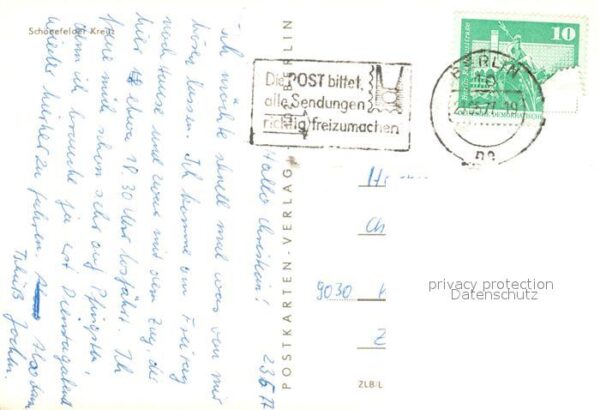 Schönefelder Kreuz
Hallo Christein!
23.5.77
Ich möchte schnell mal was von mir
hören lassen. Ich komme am Freitag
nach Hause und zwar mit dem Zug, der
hier etwa 18.30 Uhr losfährt. Ich
freue mich schon sehr auf Pfingsten,
denn ich brauche ja erst Dienstagabend
wieder hierher zu fahren.
Tschüß
Jochen.
POSTKARTEN-VERLAG BERLIN
Die POST bittet,
alle Sendungen
richtig freizumachen
10
BERLIN
9030
ZLB L
privacy protection
Datenschutz